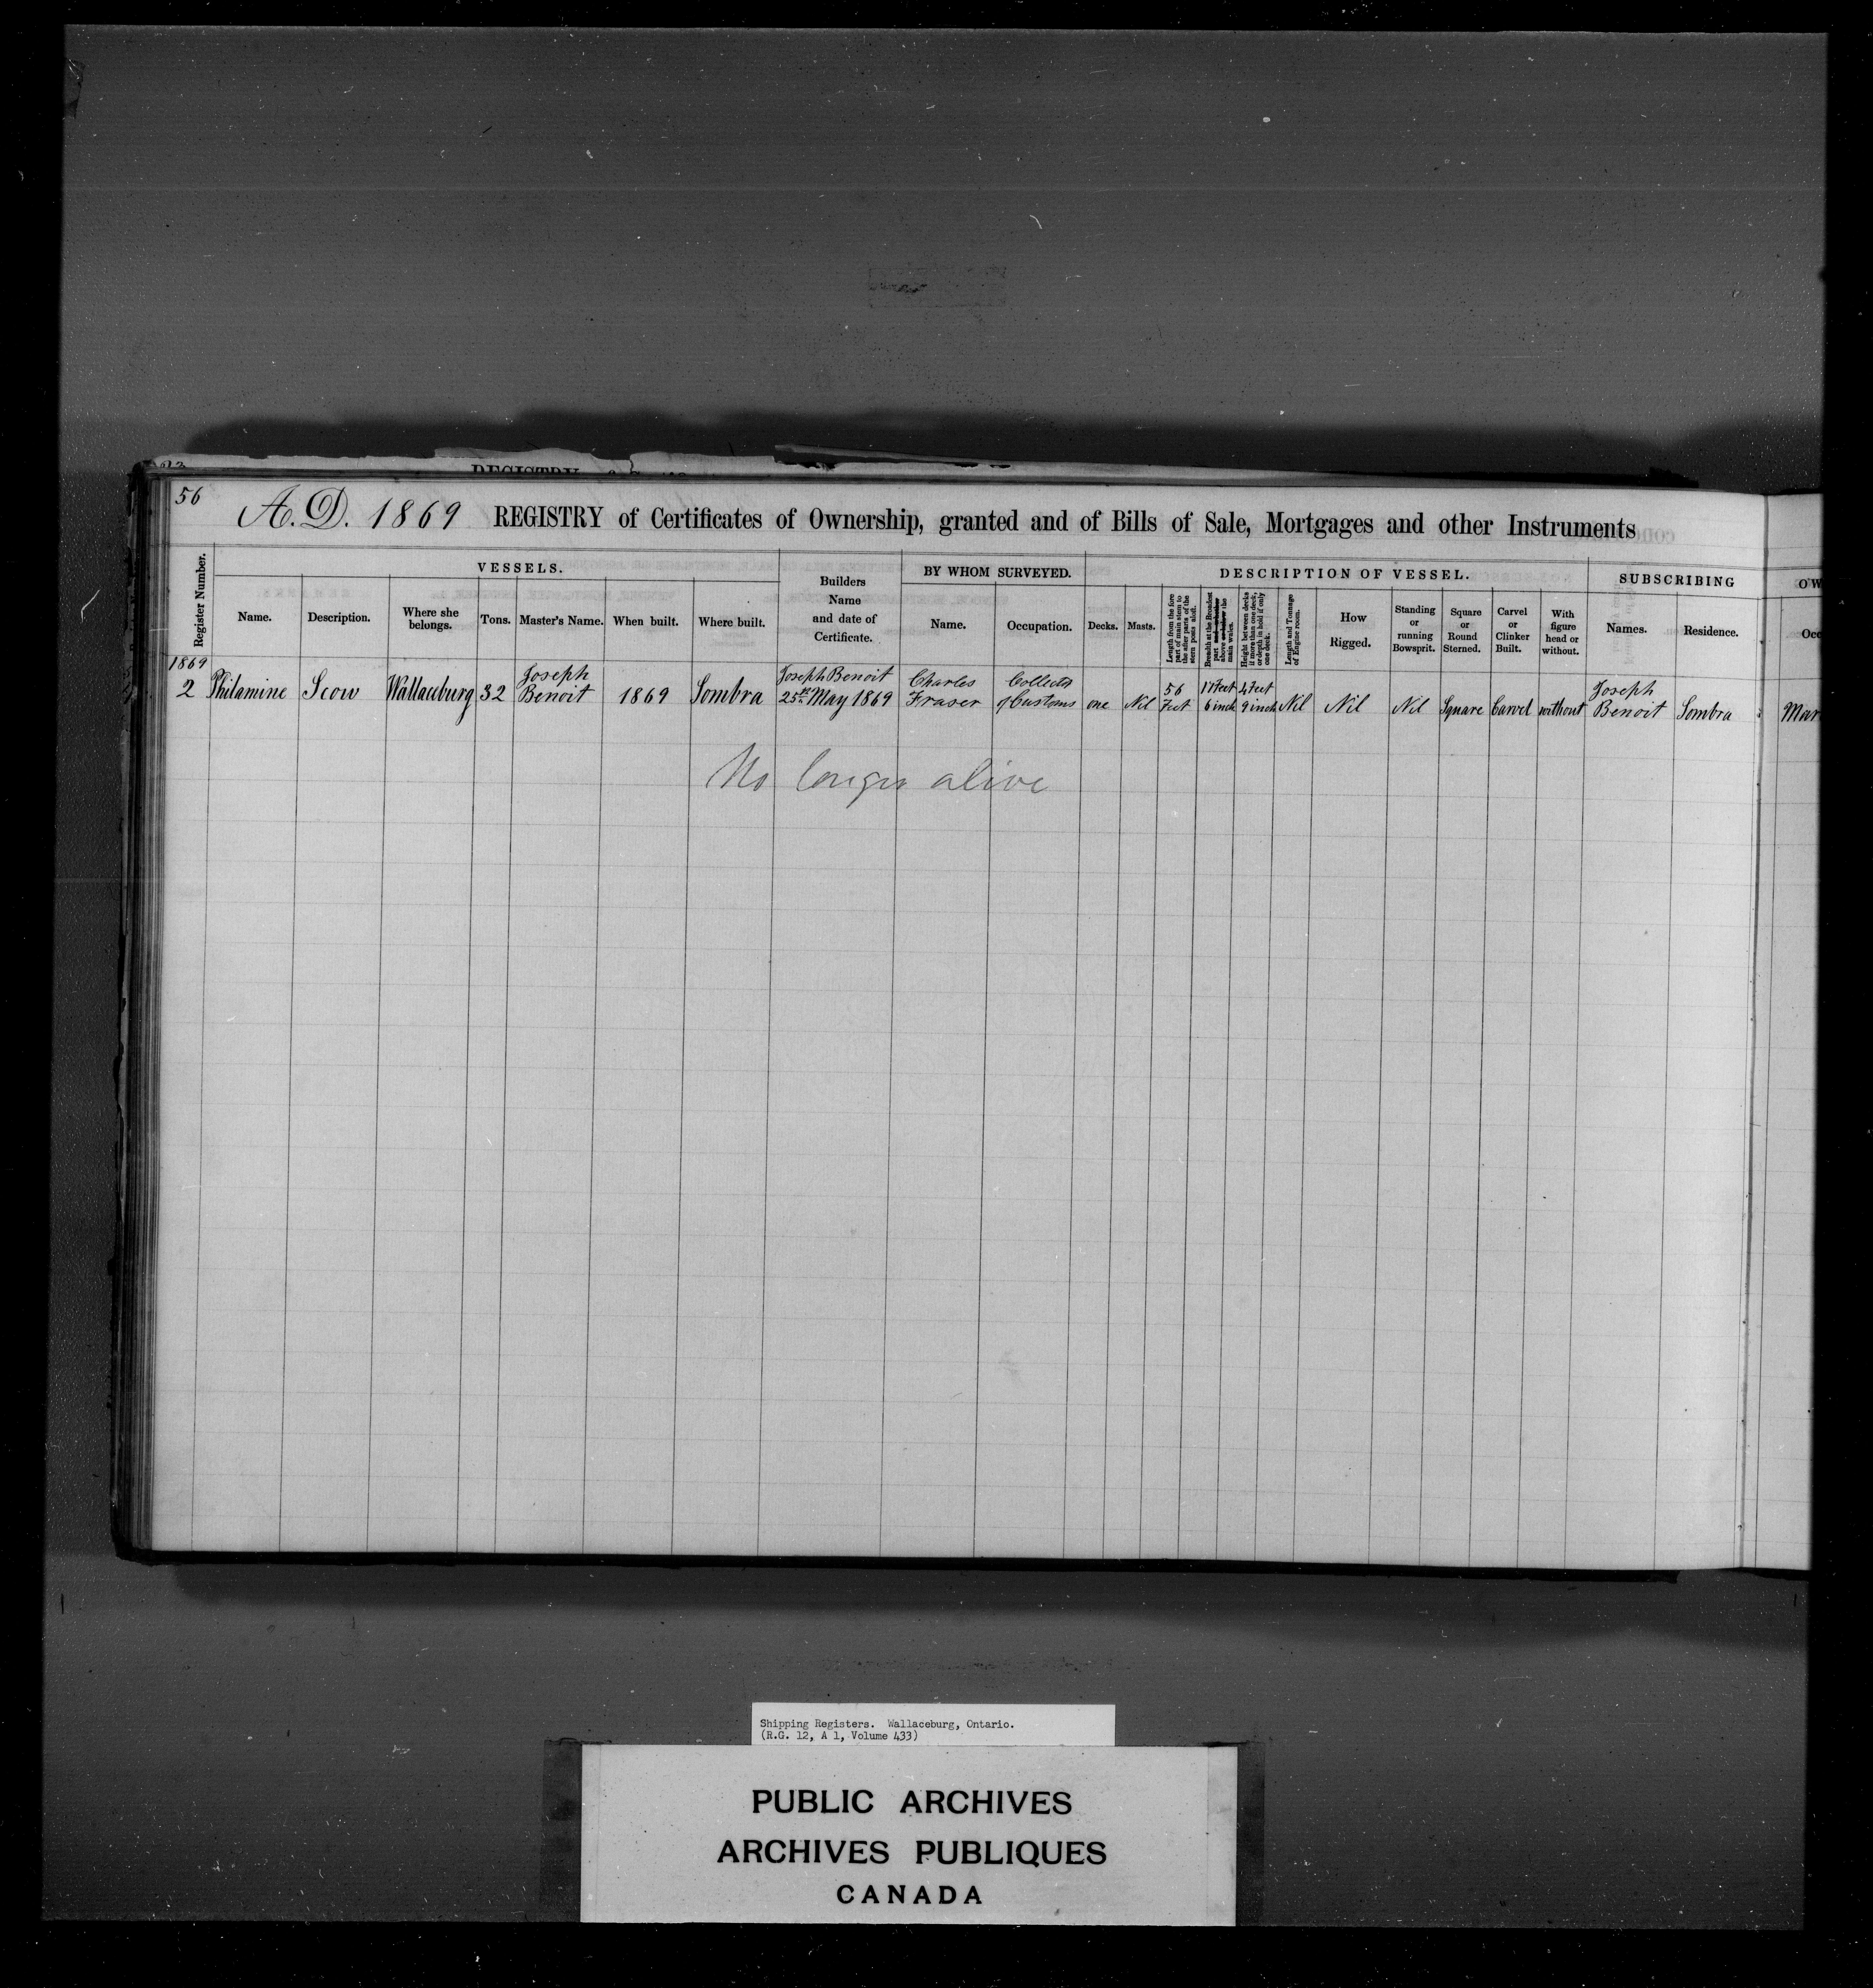 56
A.D. 1869 REGISTRY of Certificates of Ownership, granted and of Bills of Sale, Mortgages and other Instruments
Register Number.
VESSELS.
Name.
Description.
Where she belongs.
Tons.
Master's Name.
When built.
Where built.
Builders Name and date of Certificate.
BY WHOM SURVEYED.
Name.
Occupation.
DESCRIPTION OF VESSEL.
Decks.
Masts.
Length from the fore part of main stem to the after parts of the stern posts aloft.
Breadth at the Broadest part and whether above or below the main wales.
Height between decks if more than one deck, or depth in hold if only one deck.
Length and Tonnage of Engine room.
How Rigged.
Standing or running Bowsprit.
Square or Round Sterned.
Carvel or Clinker Built.
With figure head or without.
SUBSCRIBING
Names.
Residence.
OW
Occ
1869
2
Philamine
Scow
Wallaceburg
32
Joseph
Benoit
1869
Sombra
Joseph Benoit
25th May 1869
Charles
Fraser
Collector
of Customs
one
Nil
56
Feet
17 Feet
6 inch
4 Feet
9 inch
Nil
Nil
Nil
Square
Carvel
without
Joseph
Benoit
Sombra
Mar
No longer alive
Shipping Registers. Wallaceburg, Ontario.
(R.G. 12, A 1, Volume 433)
PUBLIC ARCHIVES
ARCHIVES PUBLIQUES
CANADA